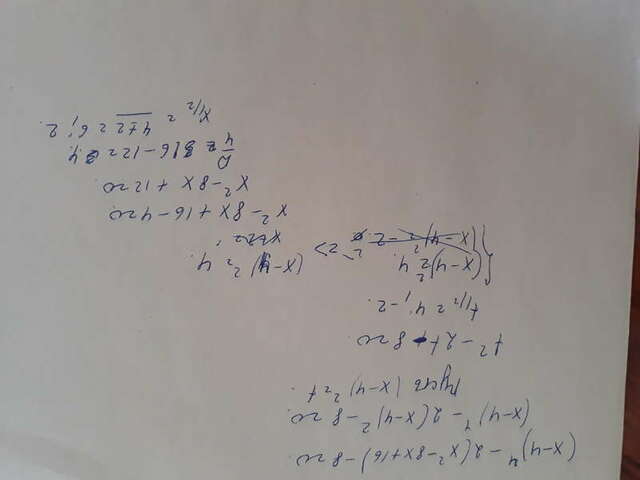 (x-4)⁴ - 2(x² - 8x + 16) - 8 = 0.
(x-4)⁴ - 2(x-4)² - 8 = 0.
Пусть (x-4)² = t.
t² - 2t - 8 = 0.
t₁/₂ = 4; -2.
(x-4)² = 4.
(x-4)² = -2.
=> (x-4)² = 4.
x² - 8x + 16 - 4 = 0
x² - 8x + 12 = 0.
D/4 = 16 - 12 = 4.
x₁/₂ = 4 ± 2 = 6; 2.